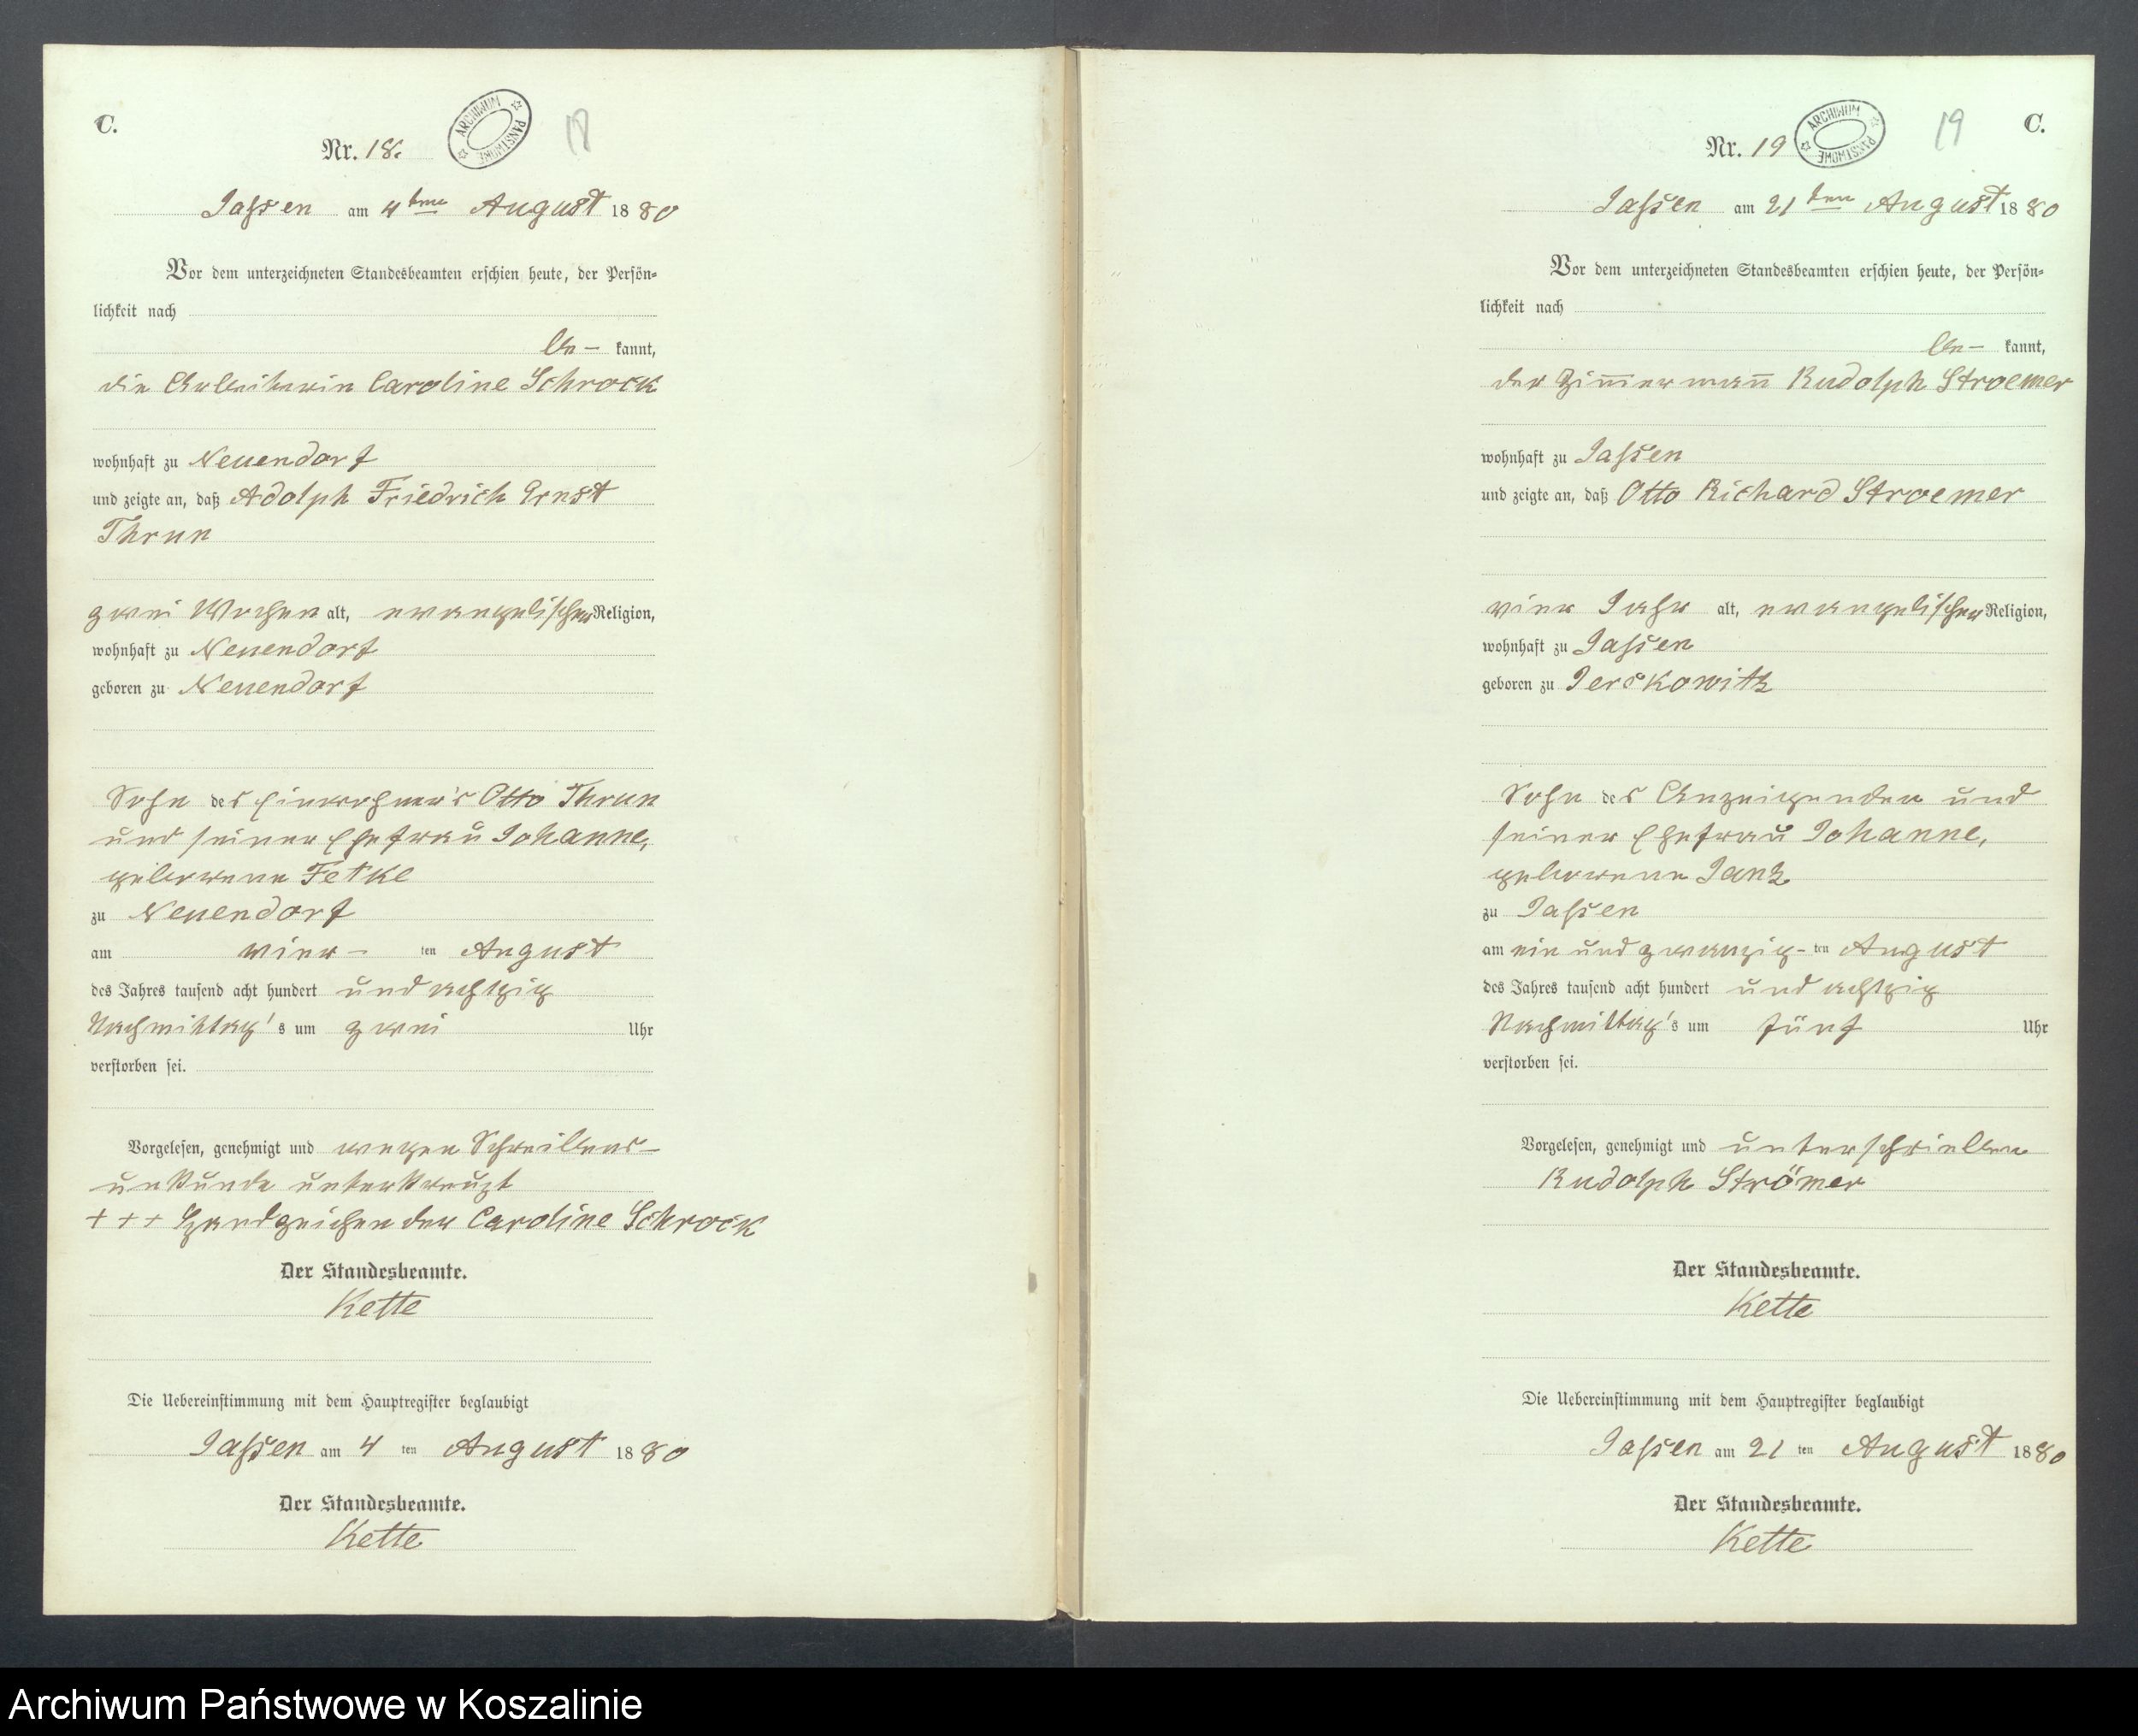 C.
Nr. 18.
ARCHIWUM PAŃSTWOWE
18
Jassen am 4ten August 1880
Vor dem unterzeichneten Standesbeamten erschien heute, der Persön-
lichkeit nach
be- kannt,
die Arbeiterin Caroline Schrock
wohnhaft zu Neuendorf
und zeigte an, daß Adolph Friedrich Ernst
Thrun
zwei Wochen alt, evangelischer Religion,
wohnhaft zu Neuendorf
geboren zu Neuendorf
Sohn des Einwohner's Otto Thrun
und seiner Ehefrau Johanne,
geborenen Fetke
zu Neuendorf
am vier- ten August
des Jahres tausend acht hundert und achtzig
Nachmittag's um zwei Uhr
verstorben sei.
Vorgelesen, genehmigt und wegen Schreibens-
unkunde unterkreuzt
+ + + Handzeichen der Caroline Schrock
Der Standesbeamte.
Kette
Die Uebereinstimmung mit dem Hauptregister beglaubigt
Jassen am 4 ten August 1880
Der Standesbeamte.
Kette
C.
Nr. 19
ARCHIWUM PAŃSTWOWE
19
Jassen am 21ten August 1880
Vor dem unterzeichneten Standesbeamten erschien heute, der Persön-
lichkeit nach
be- kannt,
der Zim̄erman̄ Rudolph Stroemer
wohnhaft zu Jassen
und zeigte an, daß Otto Richard Stroemer
vier Jahr alt, evangelischer Religion,
wohnhaft zu Jassen
geboren zu Jerskowitz
Sohn des Anzeigenden und
seiner Ehefrau Johanne,
geborenen Janz
zu Jassen
am ein und zwanzig- ten August
des Jahres tausend acht hundert und achtzig
Nachmittag's um fünf Uhr
verstorben sei.
Vorgelesen, genehmigt und unterschrieben
Rudolph Strömer
Der Standesbeamte.
Kette
Die Uebereinstimmung mit dem Hauptregister beglaubigt
Jassen am 21 ten August 1880
Der Standesbeamte.
Kette
Archiwum Państwowe w Koszalinie